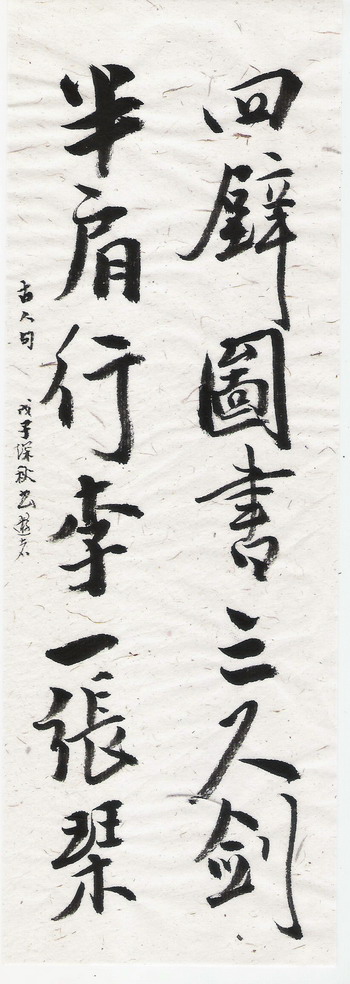 四壁圖書三尺剑
半肩行李一張琴
古人句 戊子深秋书